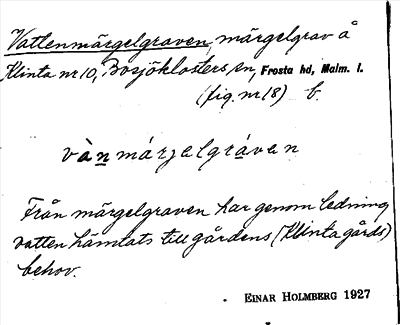 Vattenmärgelgraven, märgelgrav å
Klinta nr 10, Bosjöklosters sn, Frosta hd, Malm. l.
(fig. nr 18) b.
vànmárjelgráven
Från märgelgraven har genom ledning
vatten hämtats till gårdens (Klinta gårds)
behov.
EINAR HOLMBERG 1927